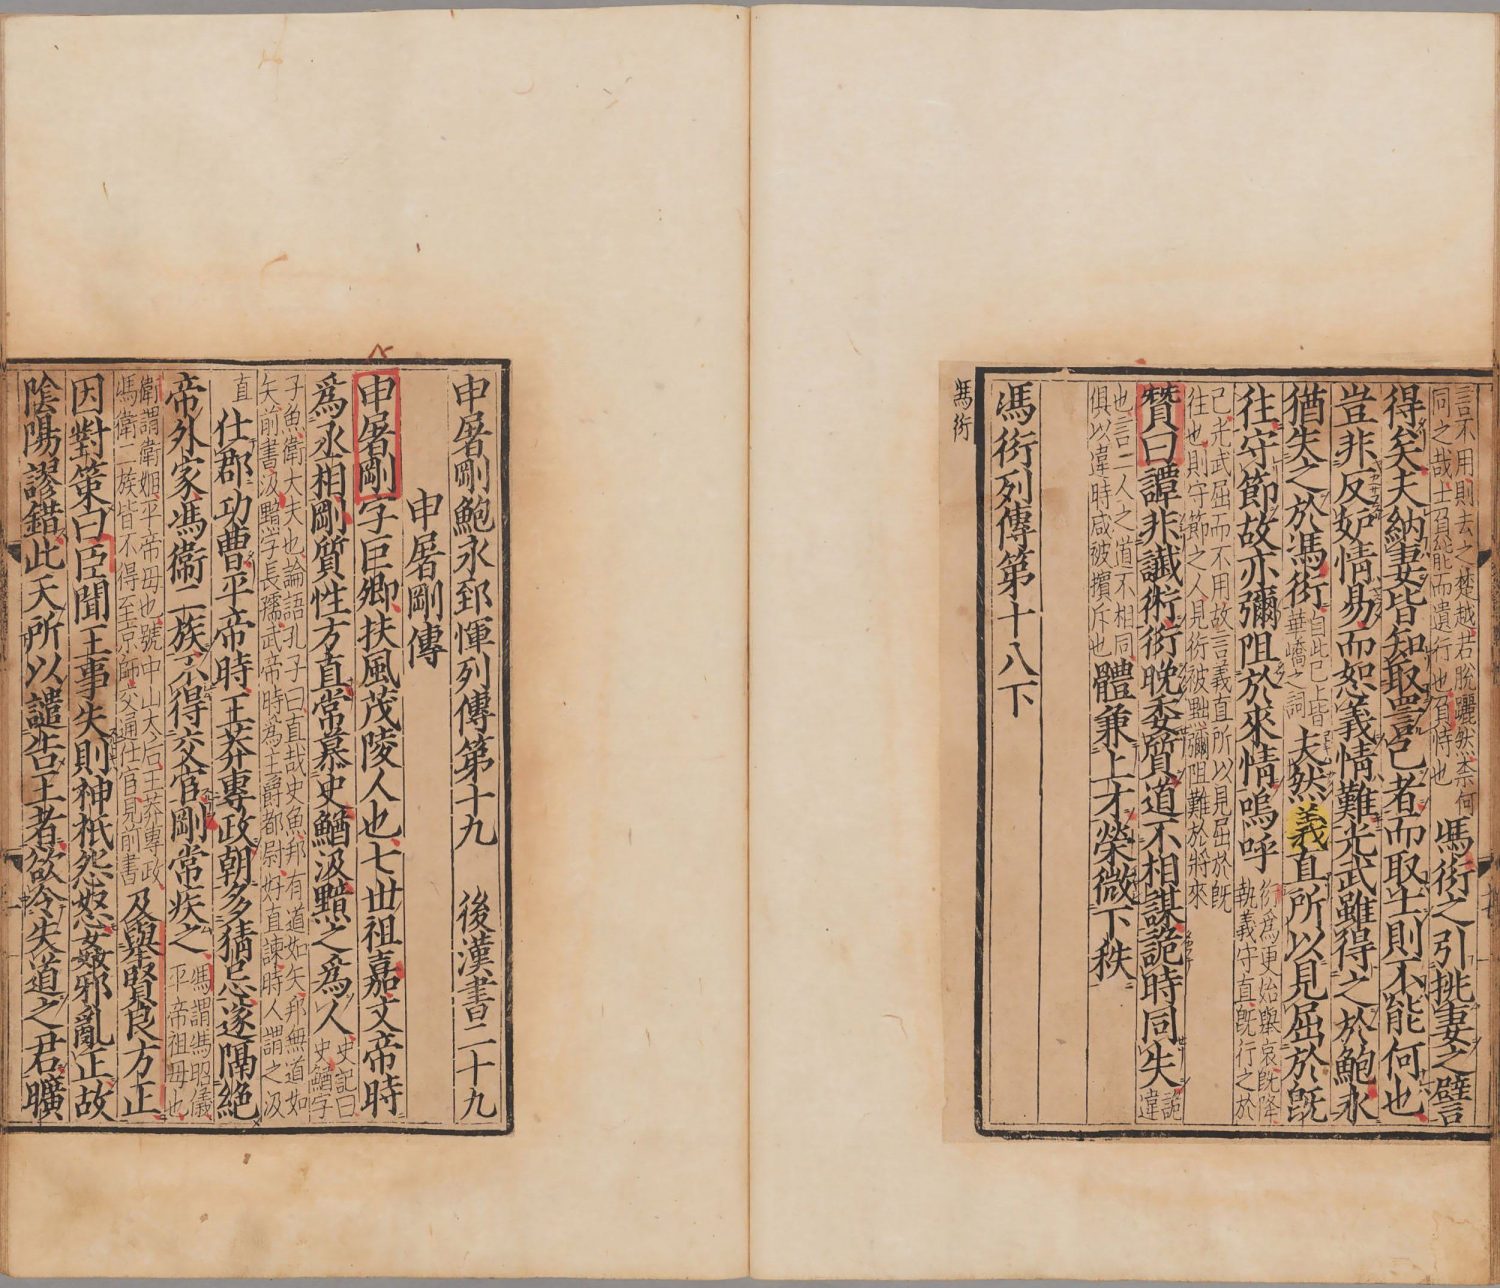 言不用則去之楚越若脫躧然柰何
同之哉士負能而遺行也負恃也
馮衍之引挑妻之譬
得矣夫納妻皆知取詈己者而取士則不能何也
豈非反妒情易而恕義情難光武雖得之於鮑永
猶失之於馮衍
自此已上皆
華嶠之詞
夫然義直所以見屈於旣
往守節故亦彌阻於來情嗚呼
衍爲更始舉哀旣降
執義守直旣行之於
己光武屈而不用故言義直所以見屈於旣
往也則守節之人見衍被黜彌阻難於將來
也言二人之道不相同
俱以違時咸被擯斥也
贊曰譚非讖術衍晚委質道不相謀詭時同失
詭
違
體兼上才榮微下秩
馮衍列傳第十八下
馮衍
申屠剛鮑永郅惲列傳第十九 後漢書二十九
申屠剛傳
申屠剛字巨卿扶風茂陵人也七世祖嘉文帝時
爲丞相剛質性方直常慕史鰌汲黯之爲人
史記曰
史鰌字
子魚衛大夫也論語孔子曰直哉史魚邦有道如矢邦無道如
矢前書汲黯字長孺武帝時爲主爵都尉好直諫時人謂之汲
直
仕郡功曹平帝時王莽專政朝多猜忌遂隔絶
帝外家馮衞二族不得交官剛常疾之
馮謂馮昭儀
平帝祖母也
衛謂衛姬平帝母也號中山太后王莽專政
馮衛二族皆不得至京師交通仕官見前書
及舉賢良方正
因對策曰臣聞王事失則神祇怨怒姦邪亂正故
陰陽謬錯此天所以譴告王者欲令失道之君曠